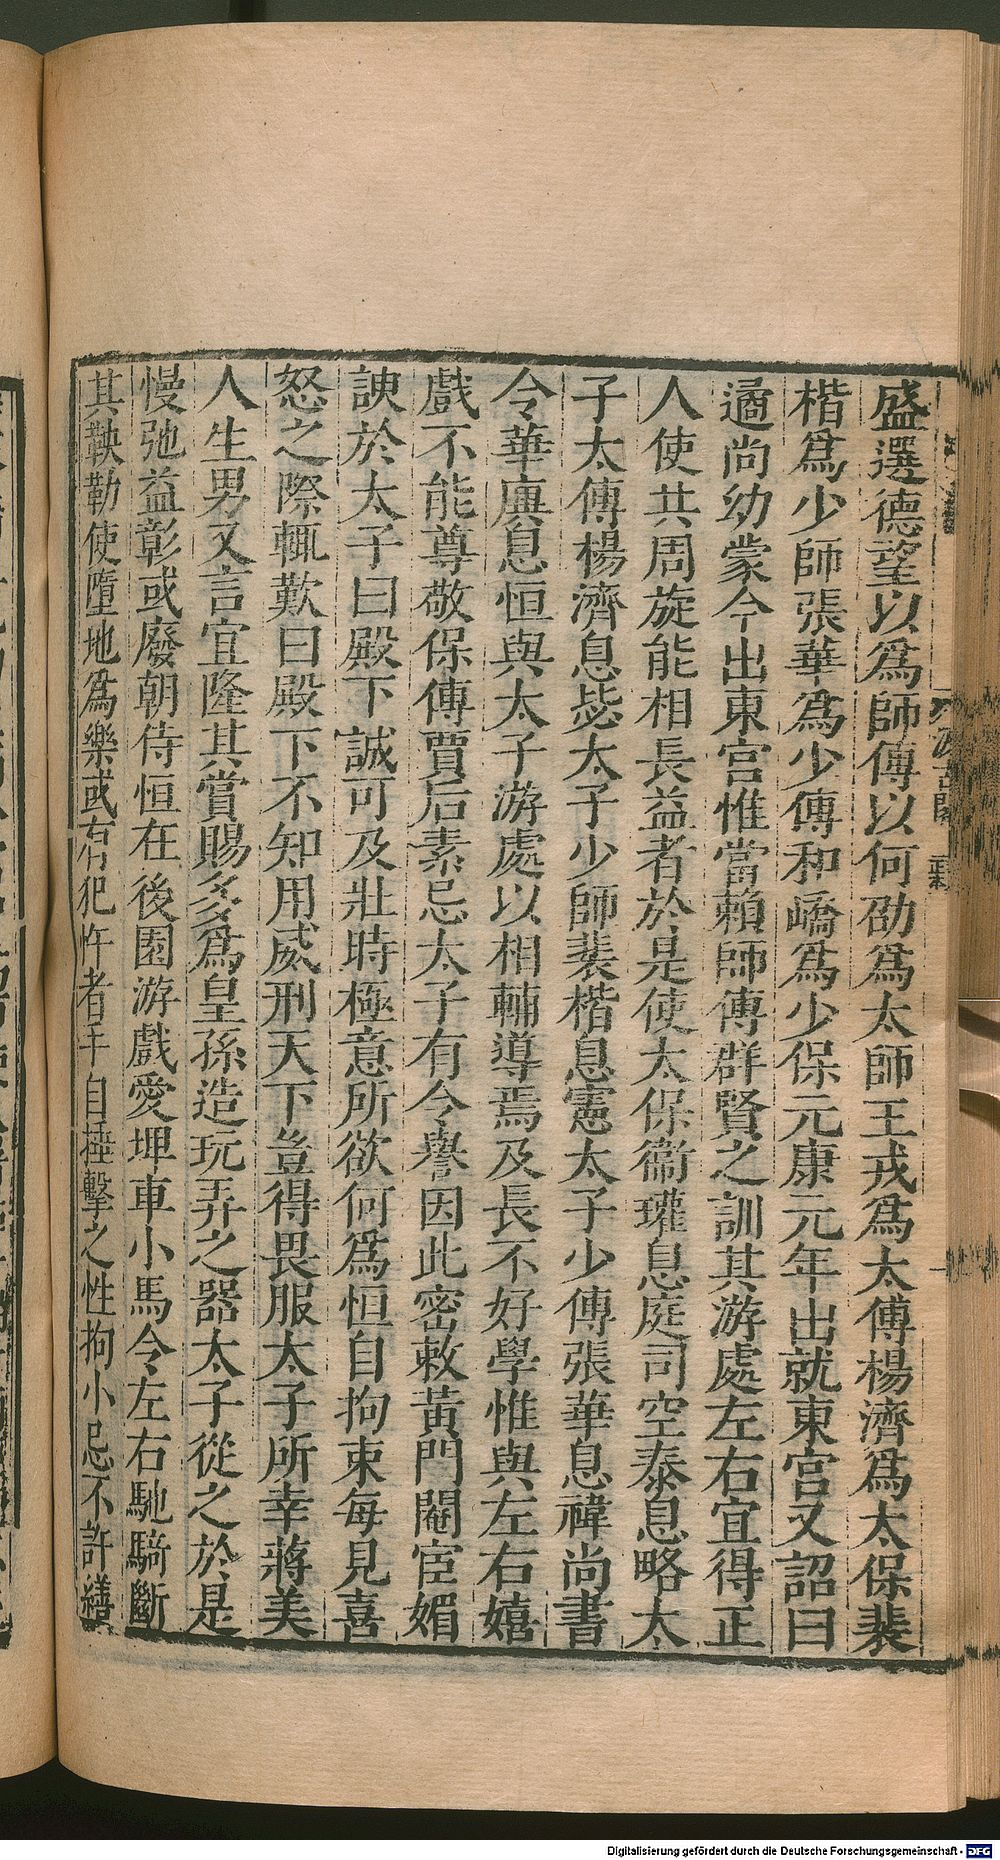 盛選德望以爲師傅以何劭爲太師王戎爲太傅楊濟爲太保裴
楷爲少師張華爲少傅和嶠爲少保元康元年出就東宮又詔曰
遹尚幼蒙今出東宮惟當賴師傅群賢之訓其游處左右宜得正
人使共周旋能相長益者於是使太保衞瓘息庭司空泰息略太
子太傅楊濟息毖太子少師裴楷息憲太子少傅張華息禕尚書
令華廙息恒與太子游處以相輔導焉及長不好學惟與左右嬉
戲不能尊敬保傅賈后素忌太子有令譽因此密敕黃門閹宦媚
諛於太子曰殿下誠可及壯時極意所欲何爲恒自拘束每見喜
怒之際輒歎曰殿下不知用威刑天下豈得畏服太子所幸蔣美
人生男又言宜隆其賞賜多爲皇孫造玩弄之器太子從之於是
慢弛益彰或廢朝侍恒在後園游戲愛埤車小馬令左右馳騎斷
其鞅勒使墮地爲樂或有犯忤者手自捶擊之性拘小忌不許繕
Digitalisierung gefördert durch die Deutsche Forschungsgemeinschaft - DFG